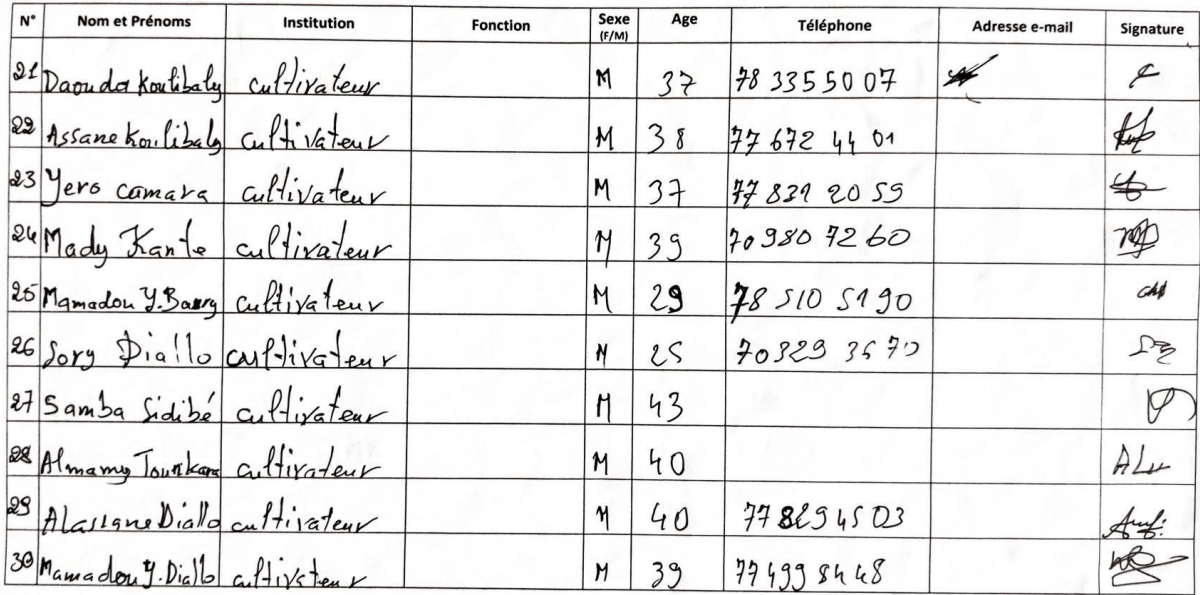 N° Nom et Prénoms Institution Fonction Sexe (F/M) Age Téléphone Adresse e-mail Signature
21 Daouda Koulibaly cultivateur M 37 78 335 50 07
22 Assane Koulibaly cultivateur M 38 77 672 44 01
23 Yero camara cultivateur M 37 77 831 20 59
24 Mady Kante cultivateur M 39 70 980 72 60
25 Mamadou Y. Barry cultivateur M 29 78 510 51 90
26 Sory Diallo cultivateur M 25 70 329 36 70
27 Samba Sidibé cultivateur M 43
28 Almamy Tounkara cultivateur M 40 ALu
29 Alassane Diallo cultivateur M 40 77 829 45 03
30 Mamadou Y. Diallo cultivateur M 39 77 499 84 48